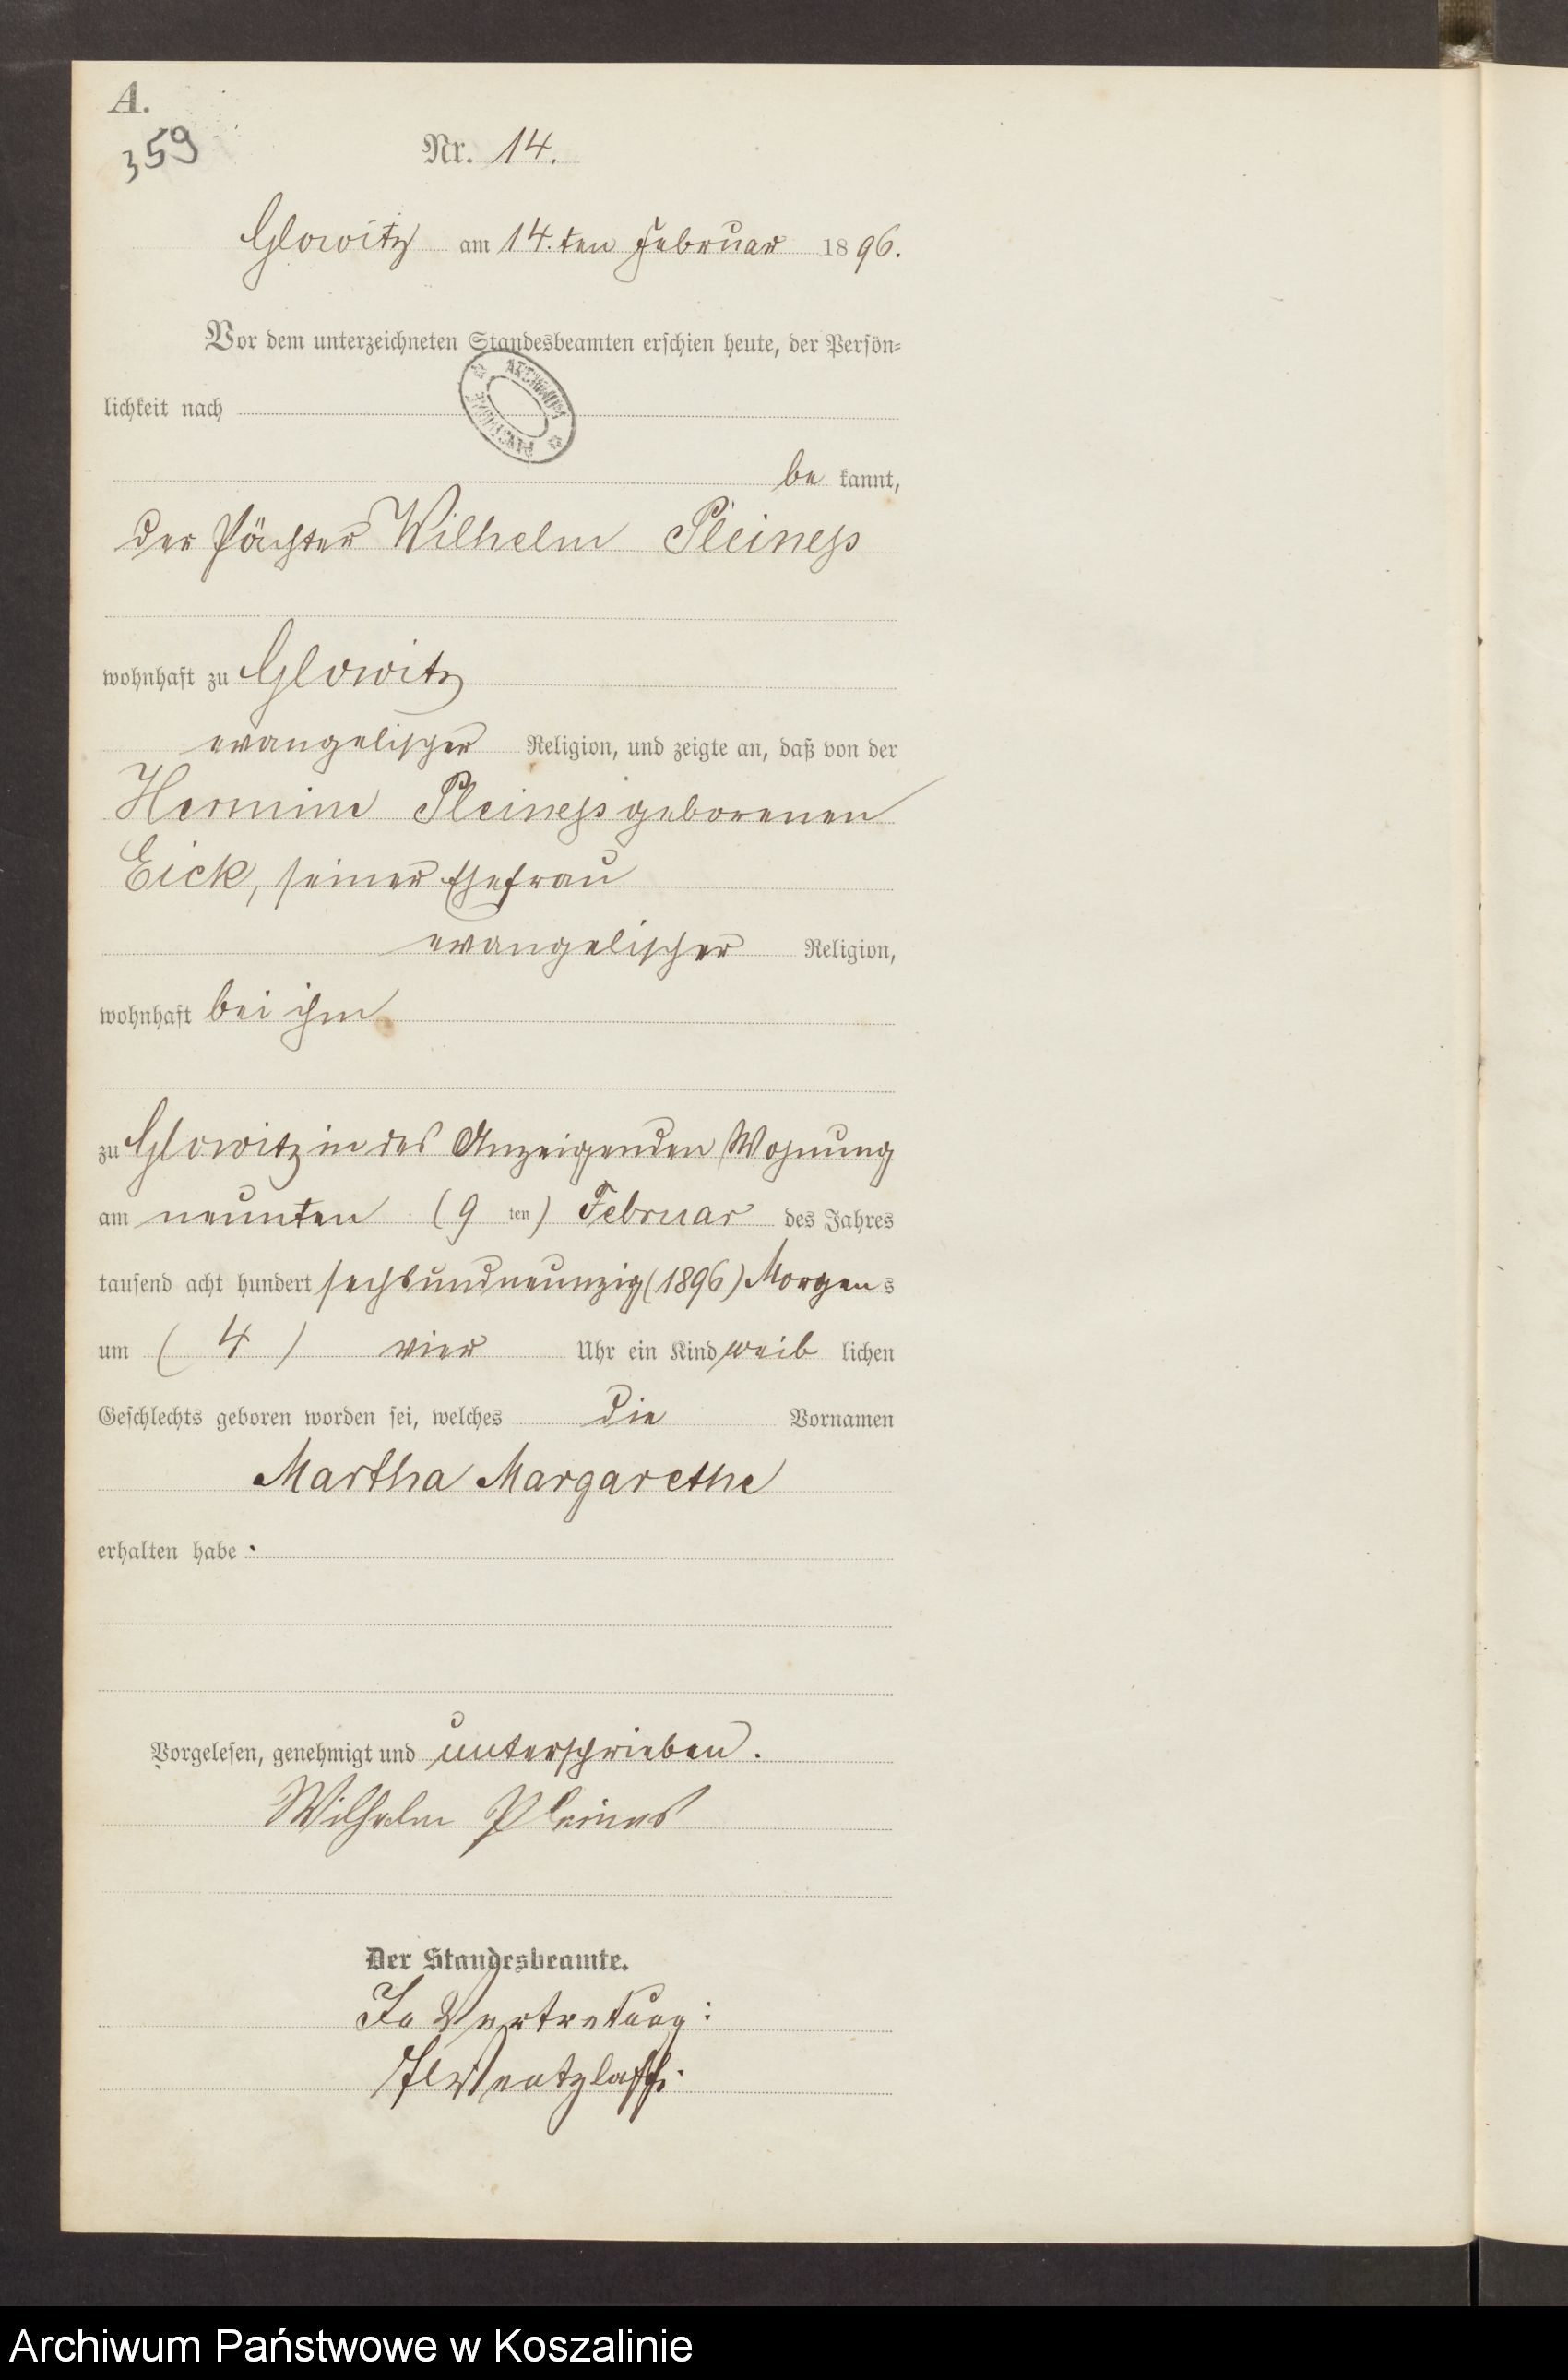 A.
359
Nr. 14.
Glowitz am 14. ten Februar 1896.
Vor dem unterzeichneten Standesbeamten erschien heute, der Persön-
lichkeit nach
ARCHIWUM PAŃSTWOWE
be kannt,
der Pächter Wilhelm Pleiness
wohnhaft zu Glowitz
evangelischer Religion, und zeigte an, daß von der
Hermine Pleiness geborenen
Eick, seiner Ehefrau
evangelischer Religion,
wohnhaft bei ihm
zu Glowitz in des Anzeigenden Wohnung
am neunten (9 ten) Februar des Jahres
tausend acht hundert sechsundneunzig (1896) Morgens
um (4) vier Uhr ein Kind weib lichen
Geschlechts geboren worden sei, welches die Vornamen
Martha Margarethe
erhalten habe.
Vorgelesen, genehmigt und unterschrieben.
Wilhelm Pleines
Der Standesbeamte.
In Vertretung:
Wentzlaff.
Archiwum Państwowe w Koszalinie